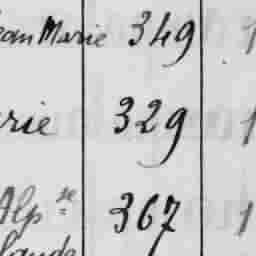 ean Marie 349 1
rie 329 1
Alp.se 367 1
laude